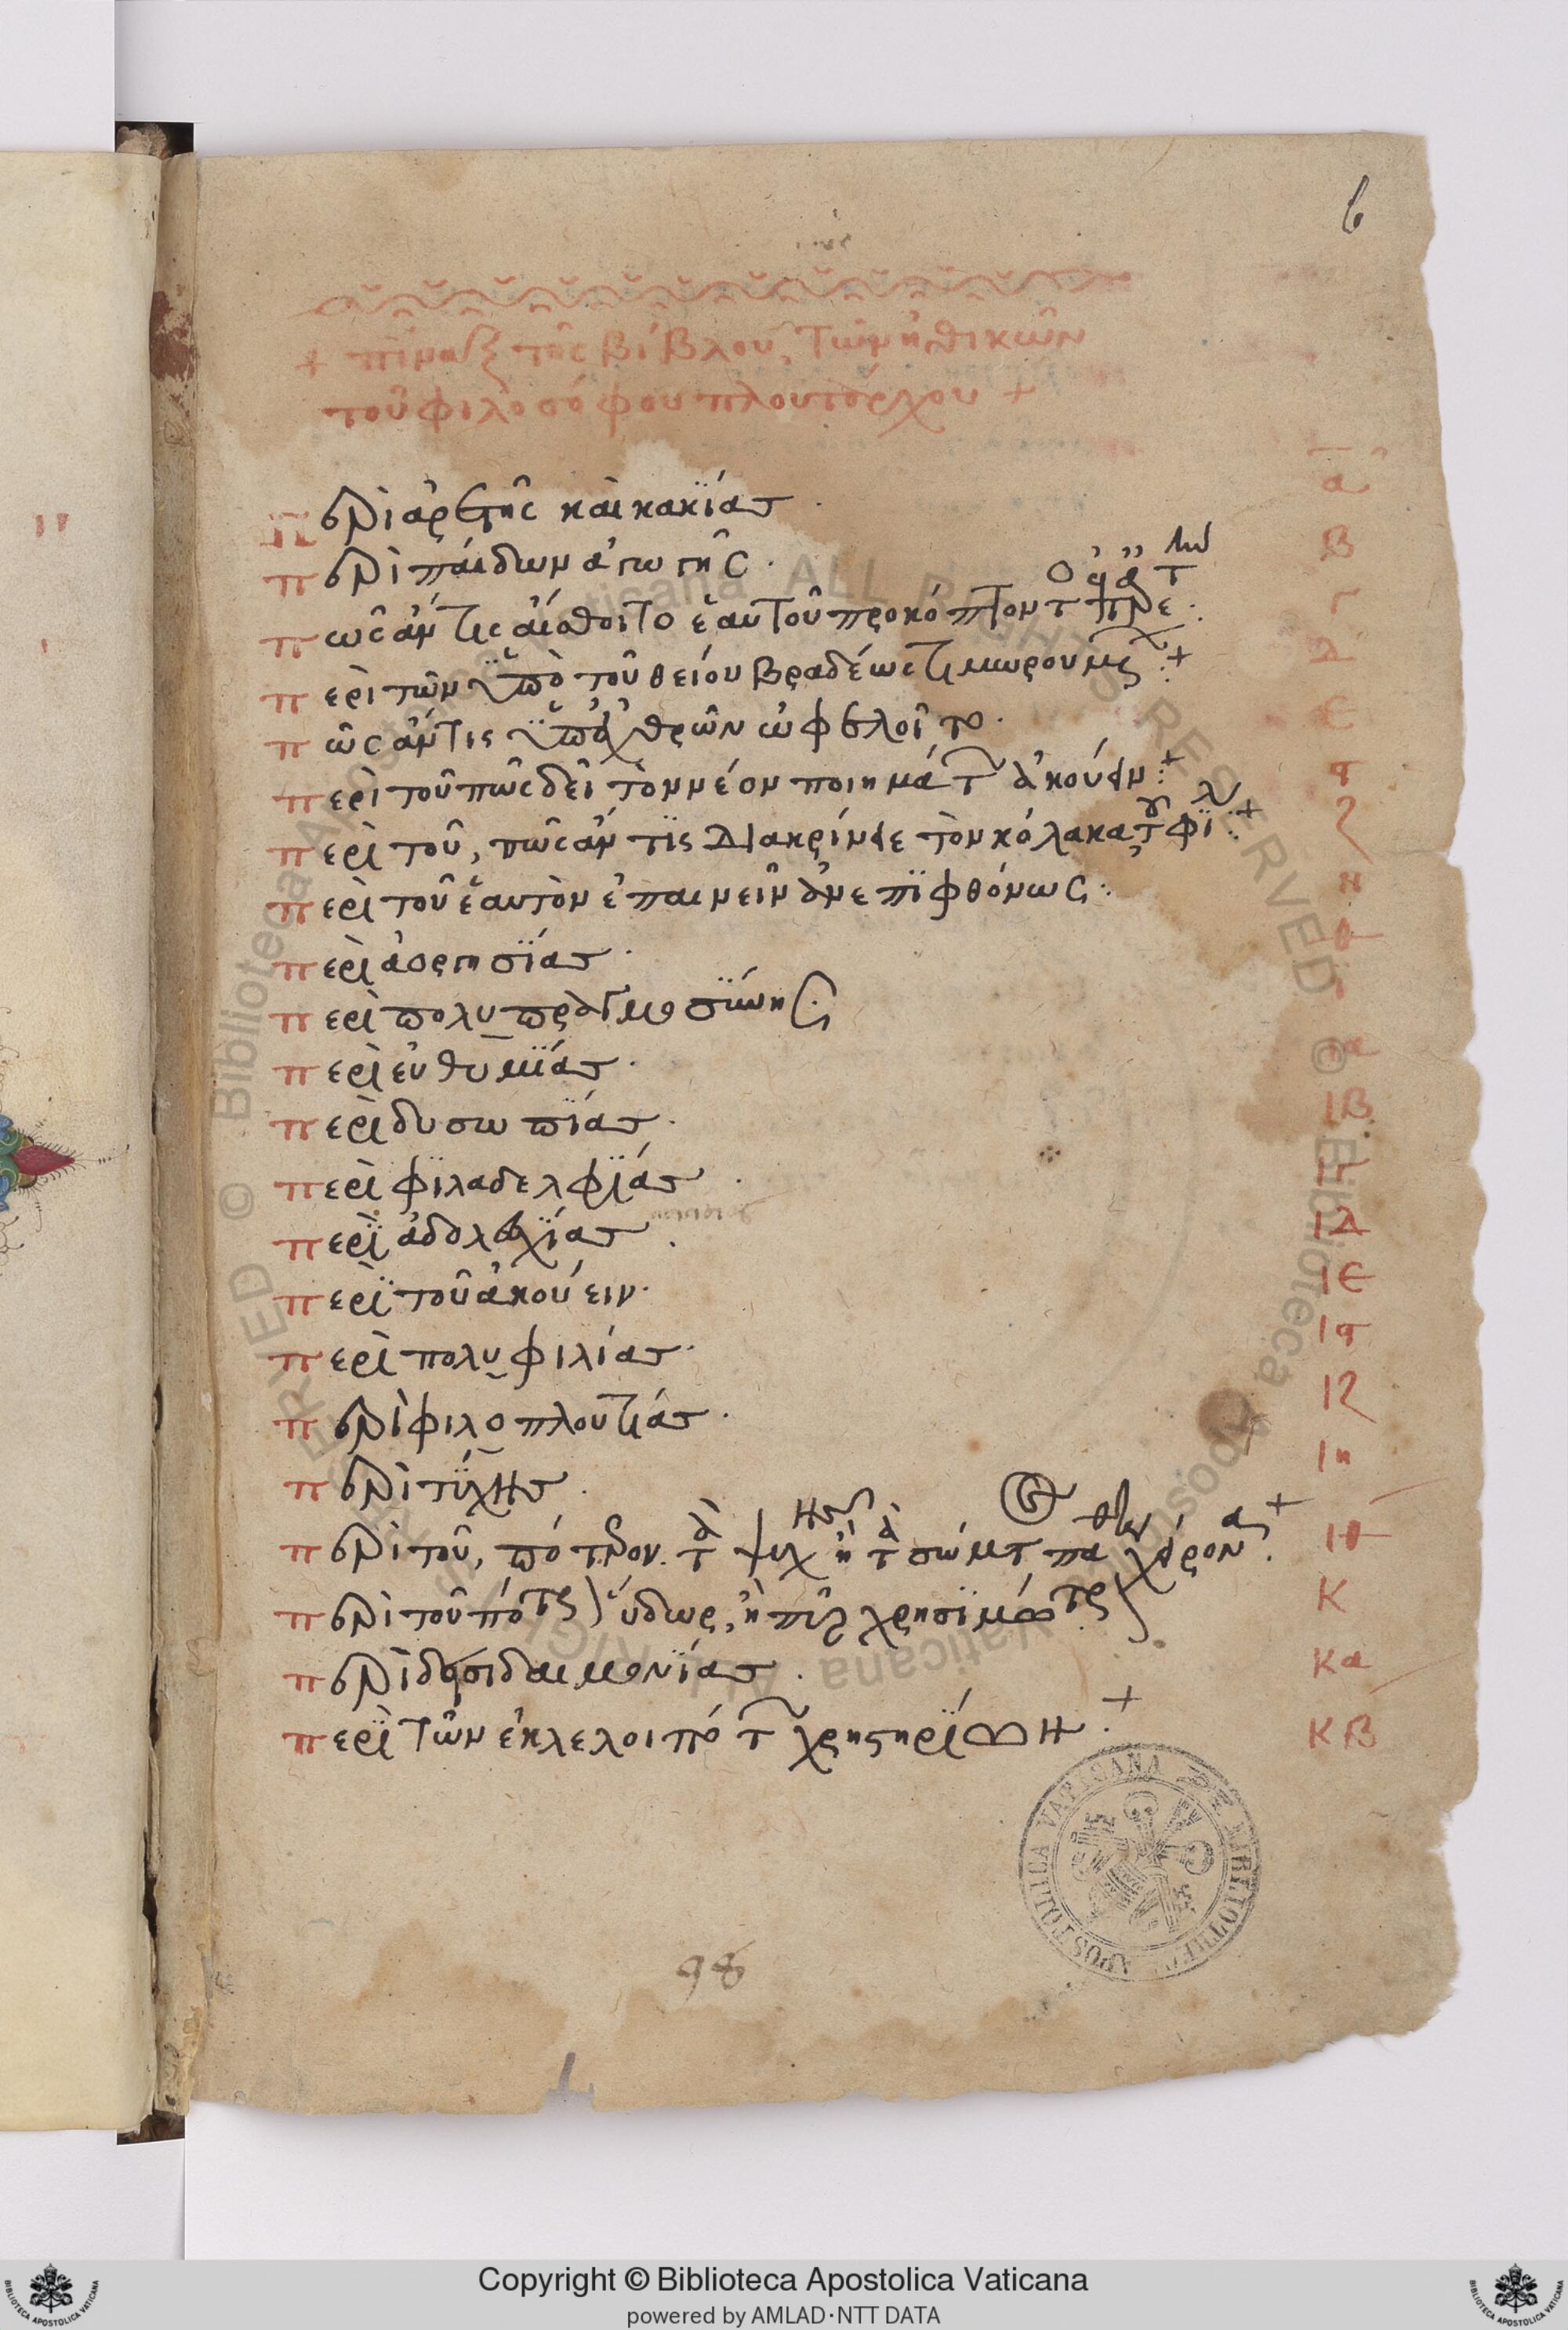 6
+ πίναξ τῆς βίβλου, τῶν ἠθικῶν
τοῦ φιλοσόφου πλουτάρχου +
περὶ ἀρετῆς καὶ κακΐας · α
περὶ παίδων ἀγωγῆς · β
πῶς ἄν τις αἴσθοιτο ἑαυτοῦ προκόπτοντ γ
περὶ τῶν ὑπὸ τοῦ θείου βραδέως τιμωρουμ :+ δ
πῶς ἄν τις ὑπ ἐχθρῶν ὠφελοῖτο · ε
περὶ τοῦ πῶς δεῖ τὸν νέον ποιημάτ ἀκούειν :+ ϛ
περὶ τοῦ, πῶς ἄν τϊς διακρίνειε τὸν κόλακα τοῦ φΐλ :+ ζ
περὶ τοῦ ἑαυτὸν ἐπαινεῖν ἀνεπϊφθόνως : η
περὶ ἀοργησΐας · θ
περὶ πολυπραγμοσΰνης · ι
περὶ εὐθυμΐας · ια
περὶ δυσωπΐας · ιβ
περὶ φϊλαδελφΐας · ιγ
περὶ ἀδολεσχΐας · ιδ
περὶ τοῦ ἀκούειν · ιε
περὶ πολυφιλίας · ιϛ
περὶ φιλοπλουτίας · ιζ
περὶ τΰχης · ιη
περὶ τοῦ, πότερον τὰ ψυχῆς ἢ τὰ σώματος πάθη χείρονα :+ ιθ
περὶ τοῦ πότερον ὕδωρ, ἢ πῦρ χρησϊμώτερον κ
περὶ δεισιδαιμονΐας · κα
περὶ τῶν ἐκλελοιπότ χρηστηρΐων :+ κβ
98
Copyright © Biblioteca Apostolica Vaticana
powered by AMLAD·NTT DATA